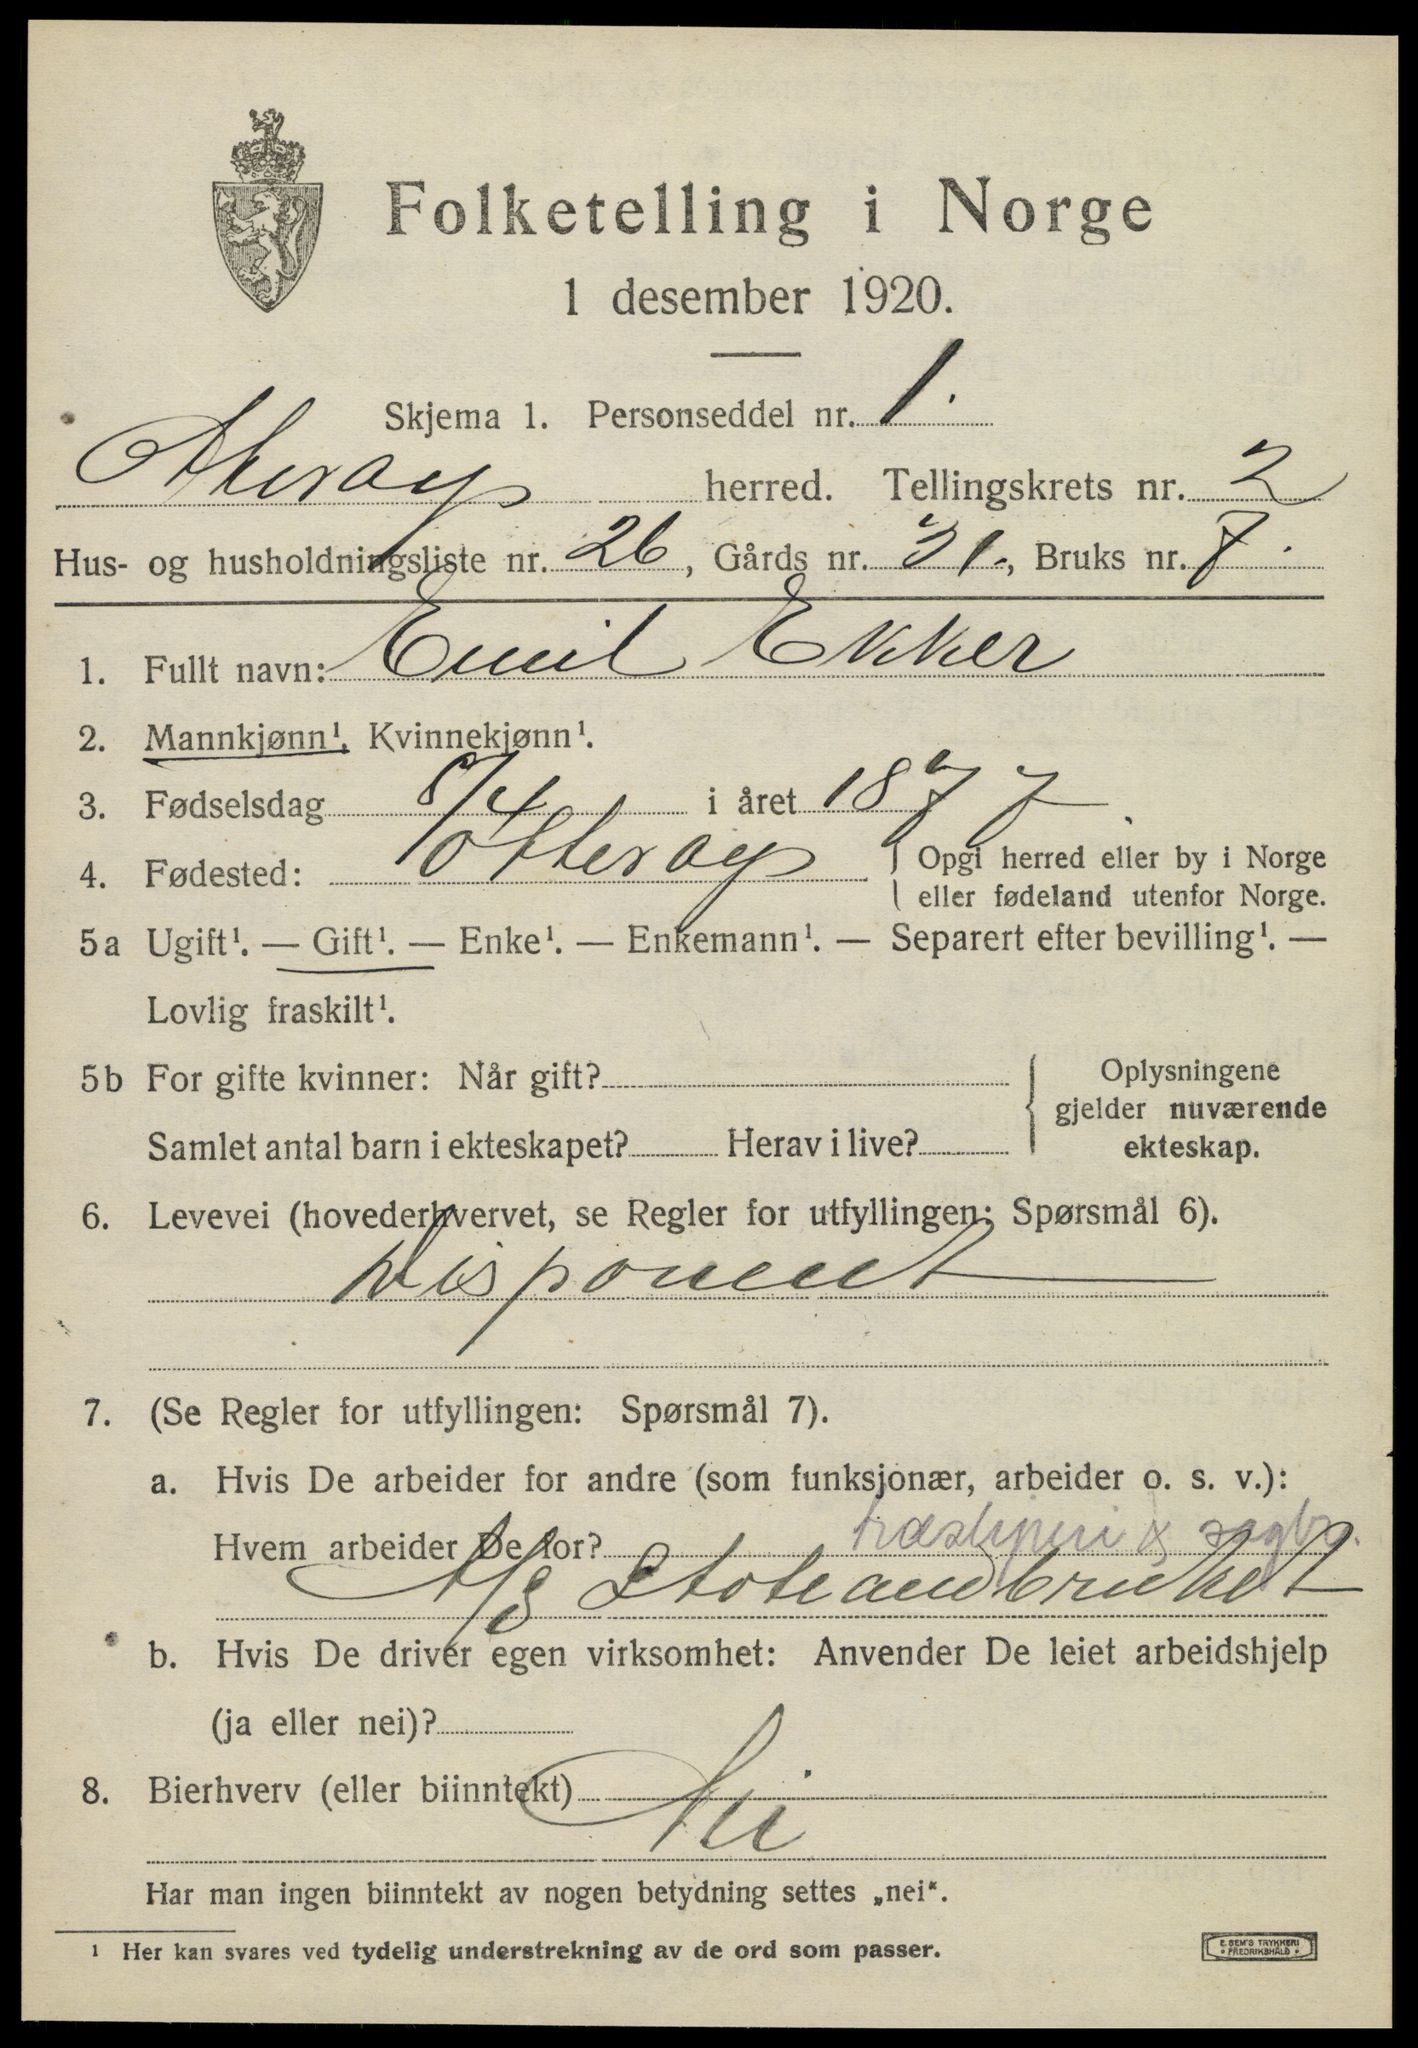 Folketelling i Norge
1 desember 1920.
Skjema 1. Personseddel nr. 1.
Otterøy herred. Tellingskrets nr. 2
Hus- og husholdningsliste nr. 26, Gårds nr. 31., Bruks nr. 7.
1. Fullt navn: Emil Ekker
2. Mannkjønn¹, Kvinnekjønn¹.
3. Fødselsdag 8/4 i året 1877
4. Fødested: Otterøy { Opgi herred eller by i Norge
eller fødeland utenfor Norge.
5a Ugift¹. — Gift¹. — Enke¹. — Enkemann¹. — Separert efter bevilling¹. —
Lovlig fraskilt¹.
5b For gifte kvinner: Når gift?
Samlet antal barn i ekteskapet? Herav i live?
Oplysningene
gjelder nuværende
ekteskap.
6. Levevei (hovederhvervet, se Regler for utfyllingen: Spørsmål 6).
Disponent
7. (Se Regler for utfyllingen: Spørsmål 7).
a. Hvis De arbeider for andre (som funksjonær, arbeider o. s. v.):
Hvem arbeider De for? træsliperi & sagbr.
A/S
b. Hvis De driver egen virksomhet: Anvender De leiet arbeidshjelp
(ja eller nei)?
8. Bierhverv (eller biinntekt) Nei
Har man ingen biinntekt av nogen betydning settes „nei“.
¹ Her kan svares ved tydelig understrekning av de ord som passer.
E. SEM'S TRYKKERI
• FREDRIKSHALD •